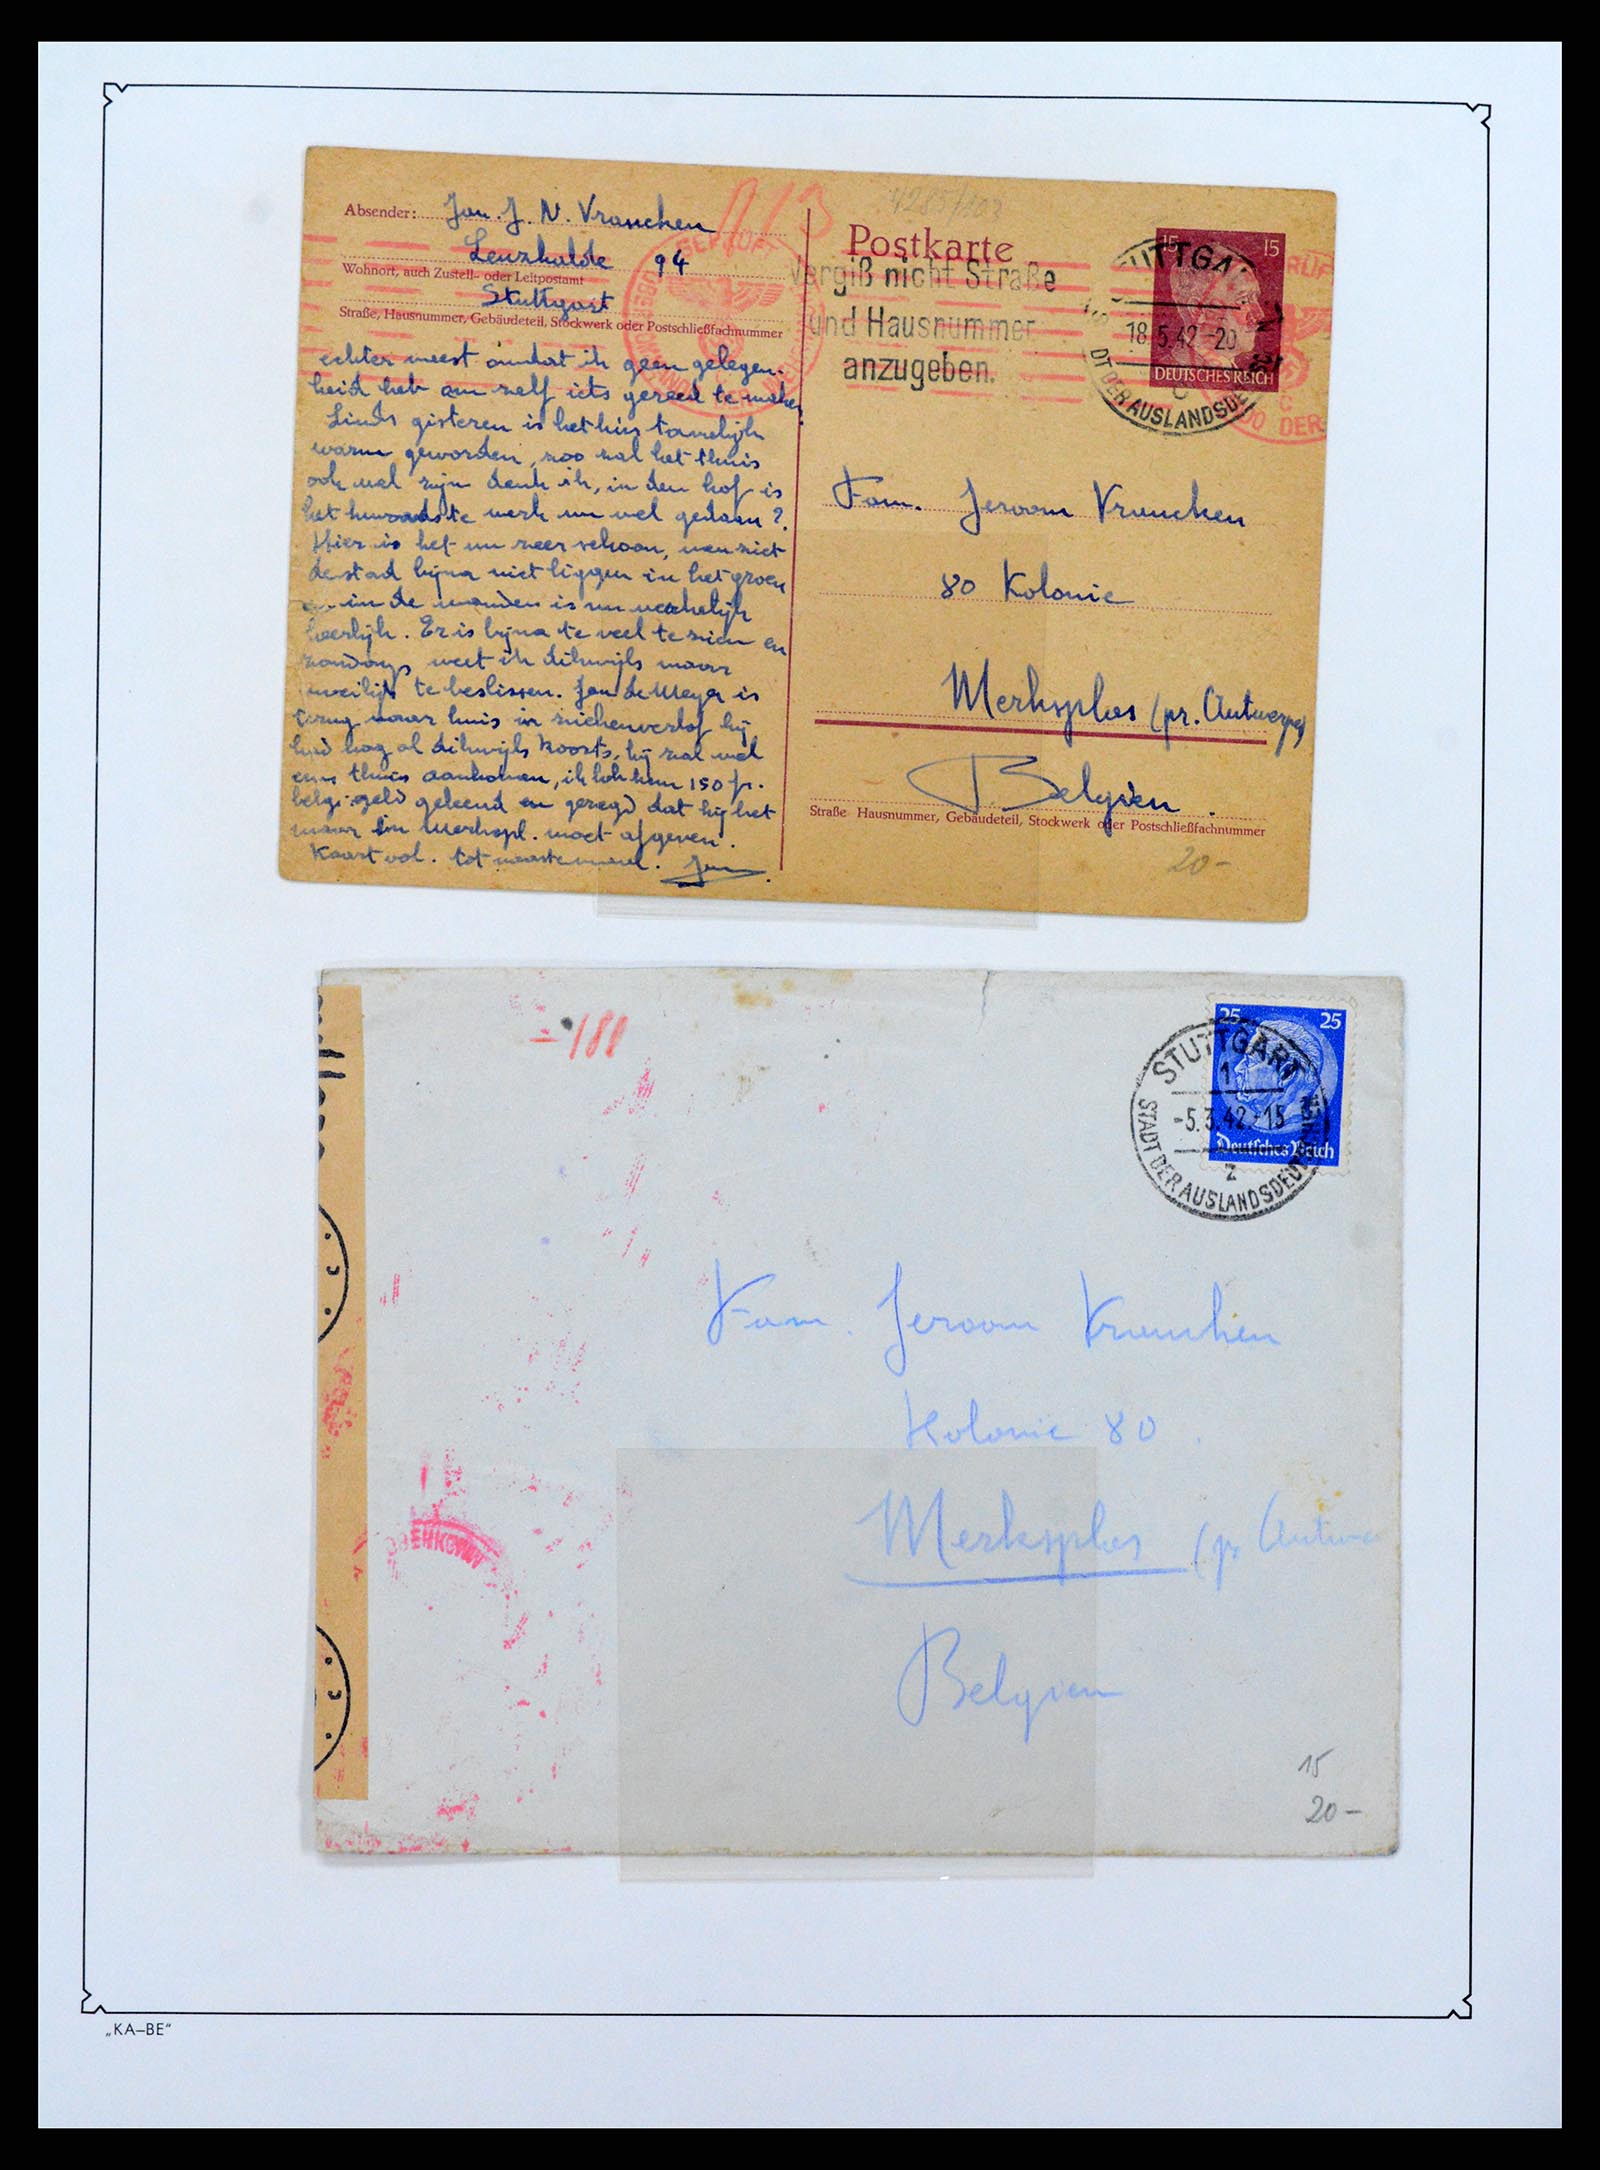 Absender: Jan. J. N. Vrancken
Lenzhalde 94
Wohnort, auch Zustell- oder Leitpostamt
Stuttgart
Straße, Hausnummer, Gebäudeteil, Stockwerk oder Postschließfachnummer
echter meest omdat ik geen gelegen-
heid heb om zelf iets gereed te maken
Sinds gisteren is het hier tamelijk
warm geworden, zoo zal het thuis
ook wel zijn denk ik, in den hof is
het het werk nu wel gedaan?
Hier is het nu zeer schoon, men ziet
de stad bijna niet liggen in het groen
in de is nu
heerlijk. Er is bijna te veel te zien en
zondags weet ik dikwijls waar
te beslissen. Jan de Meyer is
terug naar huis in ziekenverlof hij
had nog al dikwijls koorts, hij zal wel
eens thuis aankomen, ik heb hem 150 fr.
belg. geld geleend en gezegd dat hij het
maar in Merkspl. moet afgeven.
Kaart vol. tot naaste maal. Jan
A 13
4285/103
Postkarte
Vergiß nicht Straße
und Hausnummer
anzugeben.
15 15
DEUTSCHES REICH
STUTTGART
18.5.42-20
DT DER AUSLANDSDEU
GEPRÜFT
Fam. Jeroom Vrancken
80 Kolonie
Merksplas (pr. Antwerpen)
Belgien.
Straße Hausnummer, Gebäudeteil, Stockwerk oder Postschließfachnummer
20-
188
25 25
Deutsches Reich
STUTTGART
1
-5.3.42.-15
z
STADT DER AUSLANDSDEUTSCHEN
c
c
OBERKOMM
Fam. Jeroom Vrancken
Kolonie 80.
Merksplas (pr Antwe
Belgien
15
20-
„KA-BE"